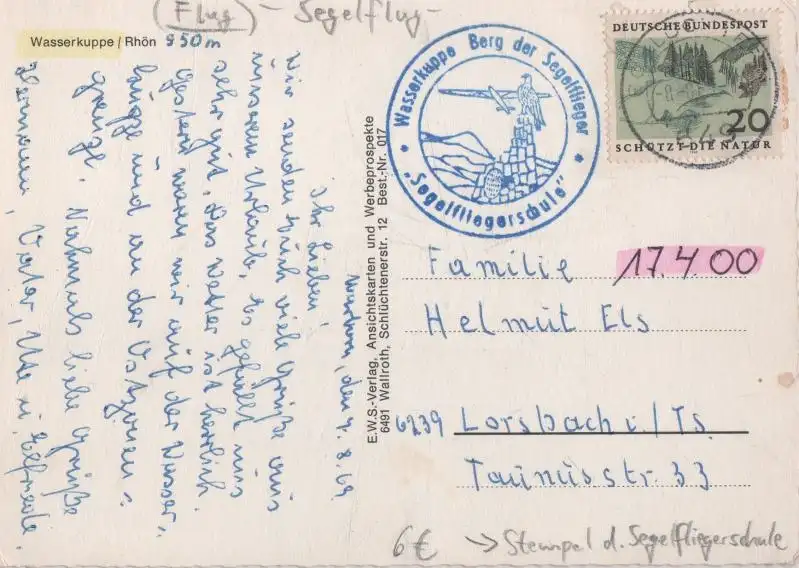 (Flug) - Segelflug -
Wasserkuppe / Rhön 950 m
DEUTSCHE BUNDESPOST
20
SCHÜTZT DIE NATUR
* Wasserkuppe Berg der Segelflieger *
„Segelfliegerschule"
den 7.8.69
Ihr Lieben!
Wir senden Euch viele Grüße aus
unserem Urlaub, es gefällt uns
sehr gut, das Wetter ist herrlich.
Gestern waren wir auf der Wasser-
kuppe und an der Ostzonen-
grenze. Nochmals liebe Grüße
Hermann, Vater, Ute u. Elfriede.
E.W.S.-Verlag, Ansichtskarten und Werbeprospekte
6491 Wallroth, Schlüchtenerstr. 12 Best.-Nr. 017
Familie 17.4.00
Helmut Els
6239 Lorsbach i/Ts.
Taunusstr. 33
6€ -> Stempel d. Segelfliegerschule